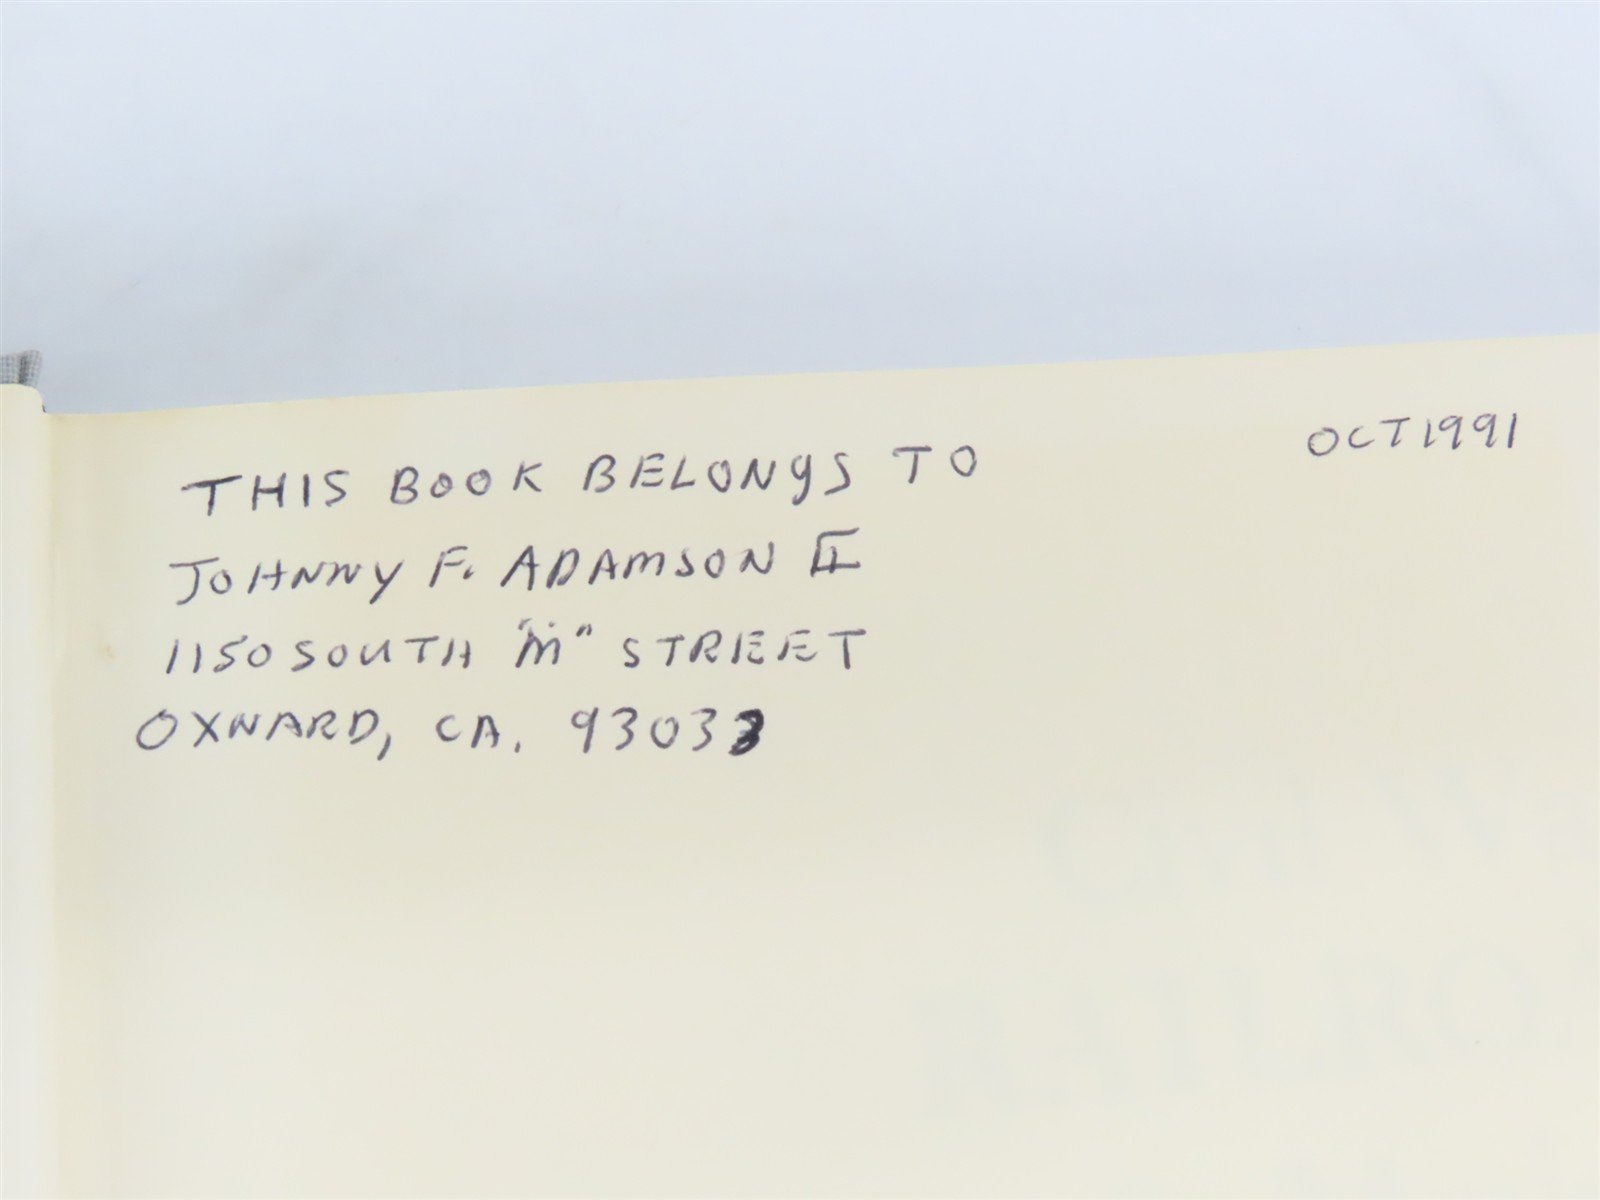 OCT 1991
THIS BOOK BELONGS TO
JOHNNY F. ADAMSON II
1150 SOUTH "M" STREET
OXNARD, CA. 93033
Civil Wa
RAILRO